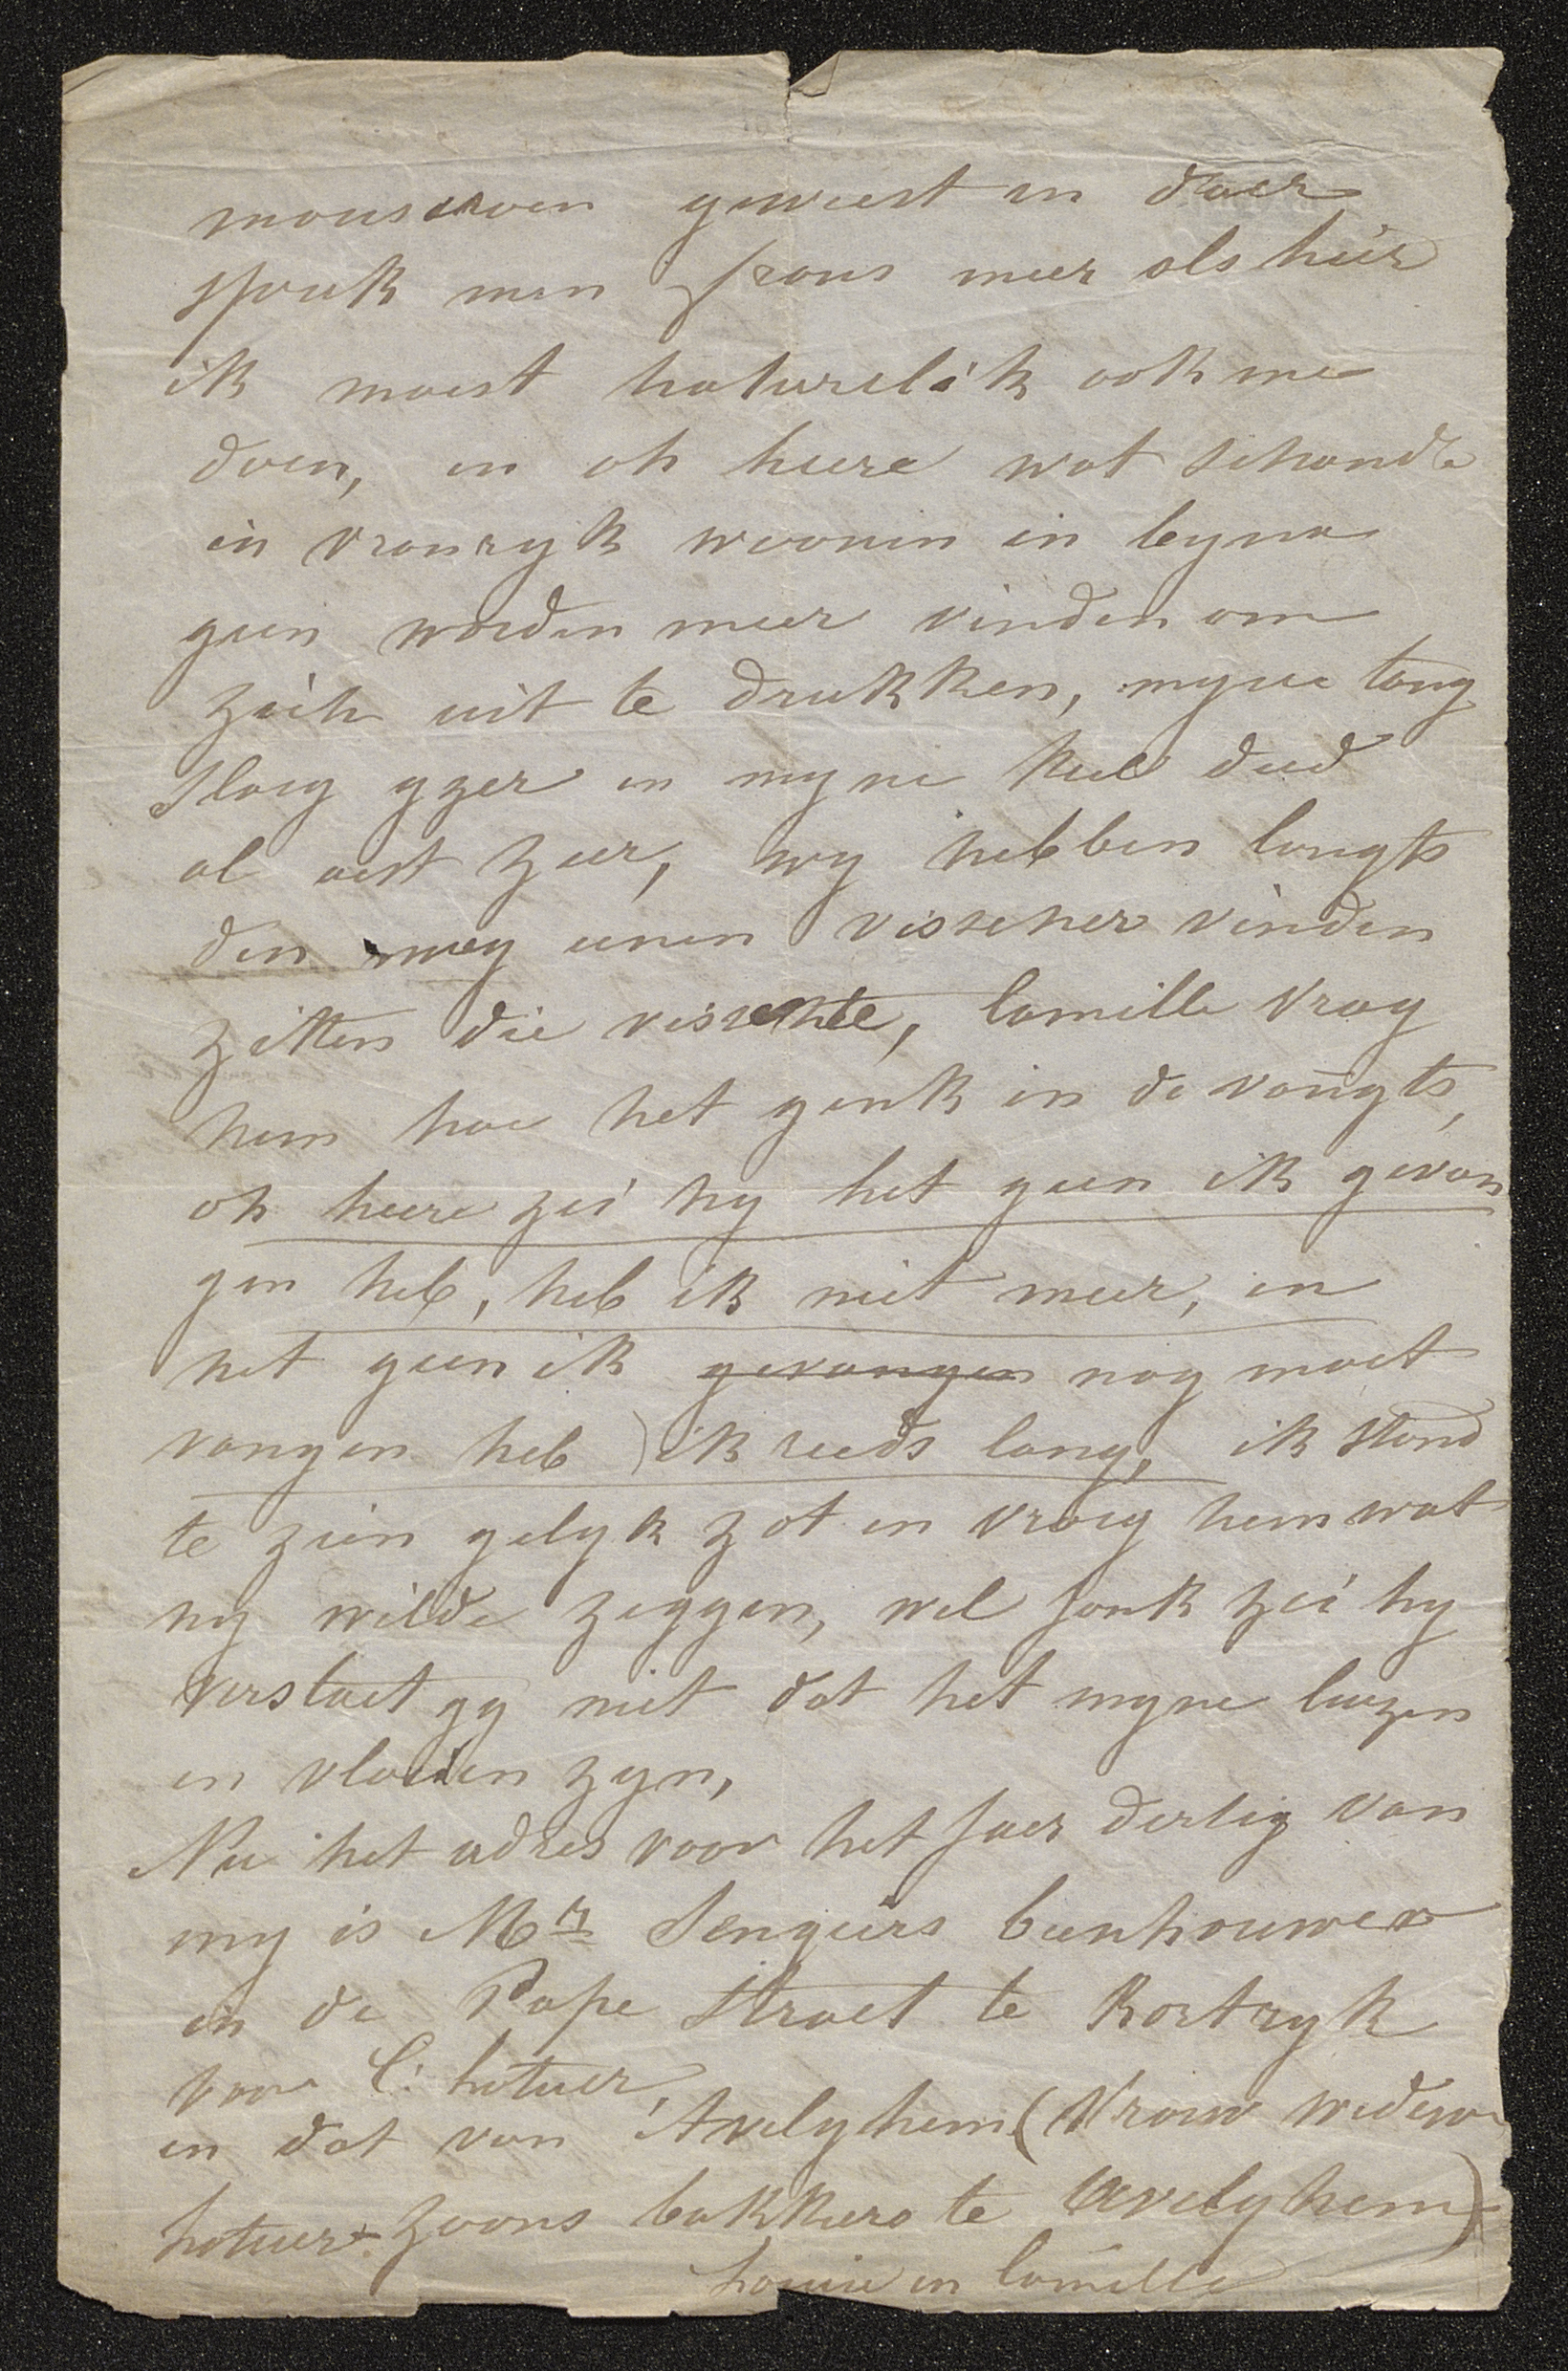 mouscroen geweest en daer
spreek men frans meer als hier
ik moest naturelik ook me
doen, en oh heere wat schande
in vranryk woonen en byna
geen worden meer vinden om
zich uit te drukken, myne tong
sloeg yzer en myne keel deed
al oest zeer, wy hebben langts
den weg eenen visscher vinden
zitten die visschte, Camille vroeg
hem hoe het genk in de vangts,
oh heere zei hy het geen ik gevan
gen heb, heb ik niet meer, en
het geen ik gevangen nog moet
vangen heb ik reeds lang, ik stond
te zien gelyk zot en vroeg hem wat
hy wilde zeggen, wel jonk zei hy
verstaet gy niet dat het myne luizen
en vloeien zyn,
Nu het adres voor het jaer dertig van
my is Mr Sengiers beenhouwer
in de Pape Straet te Kortryk
voor C:
en dat van Avelghem (Vrouw weduwe
zoons bakkers te Avelghem)
Louise en Camille